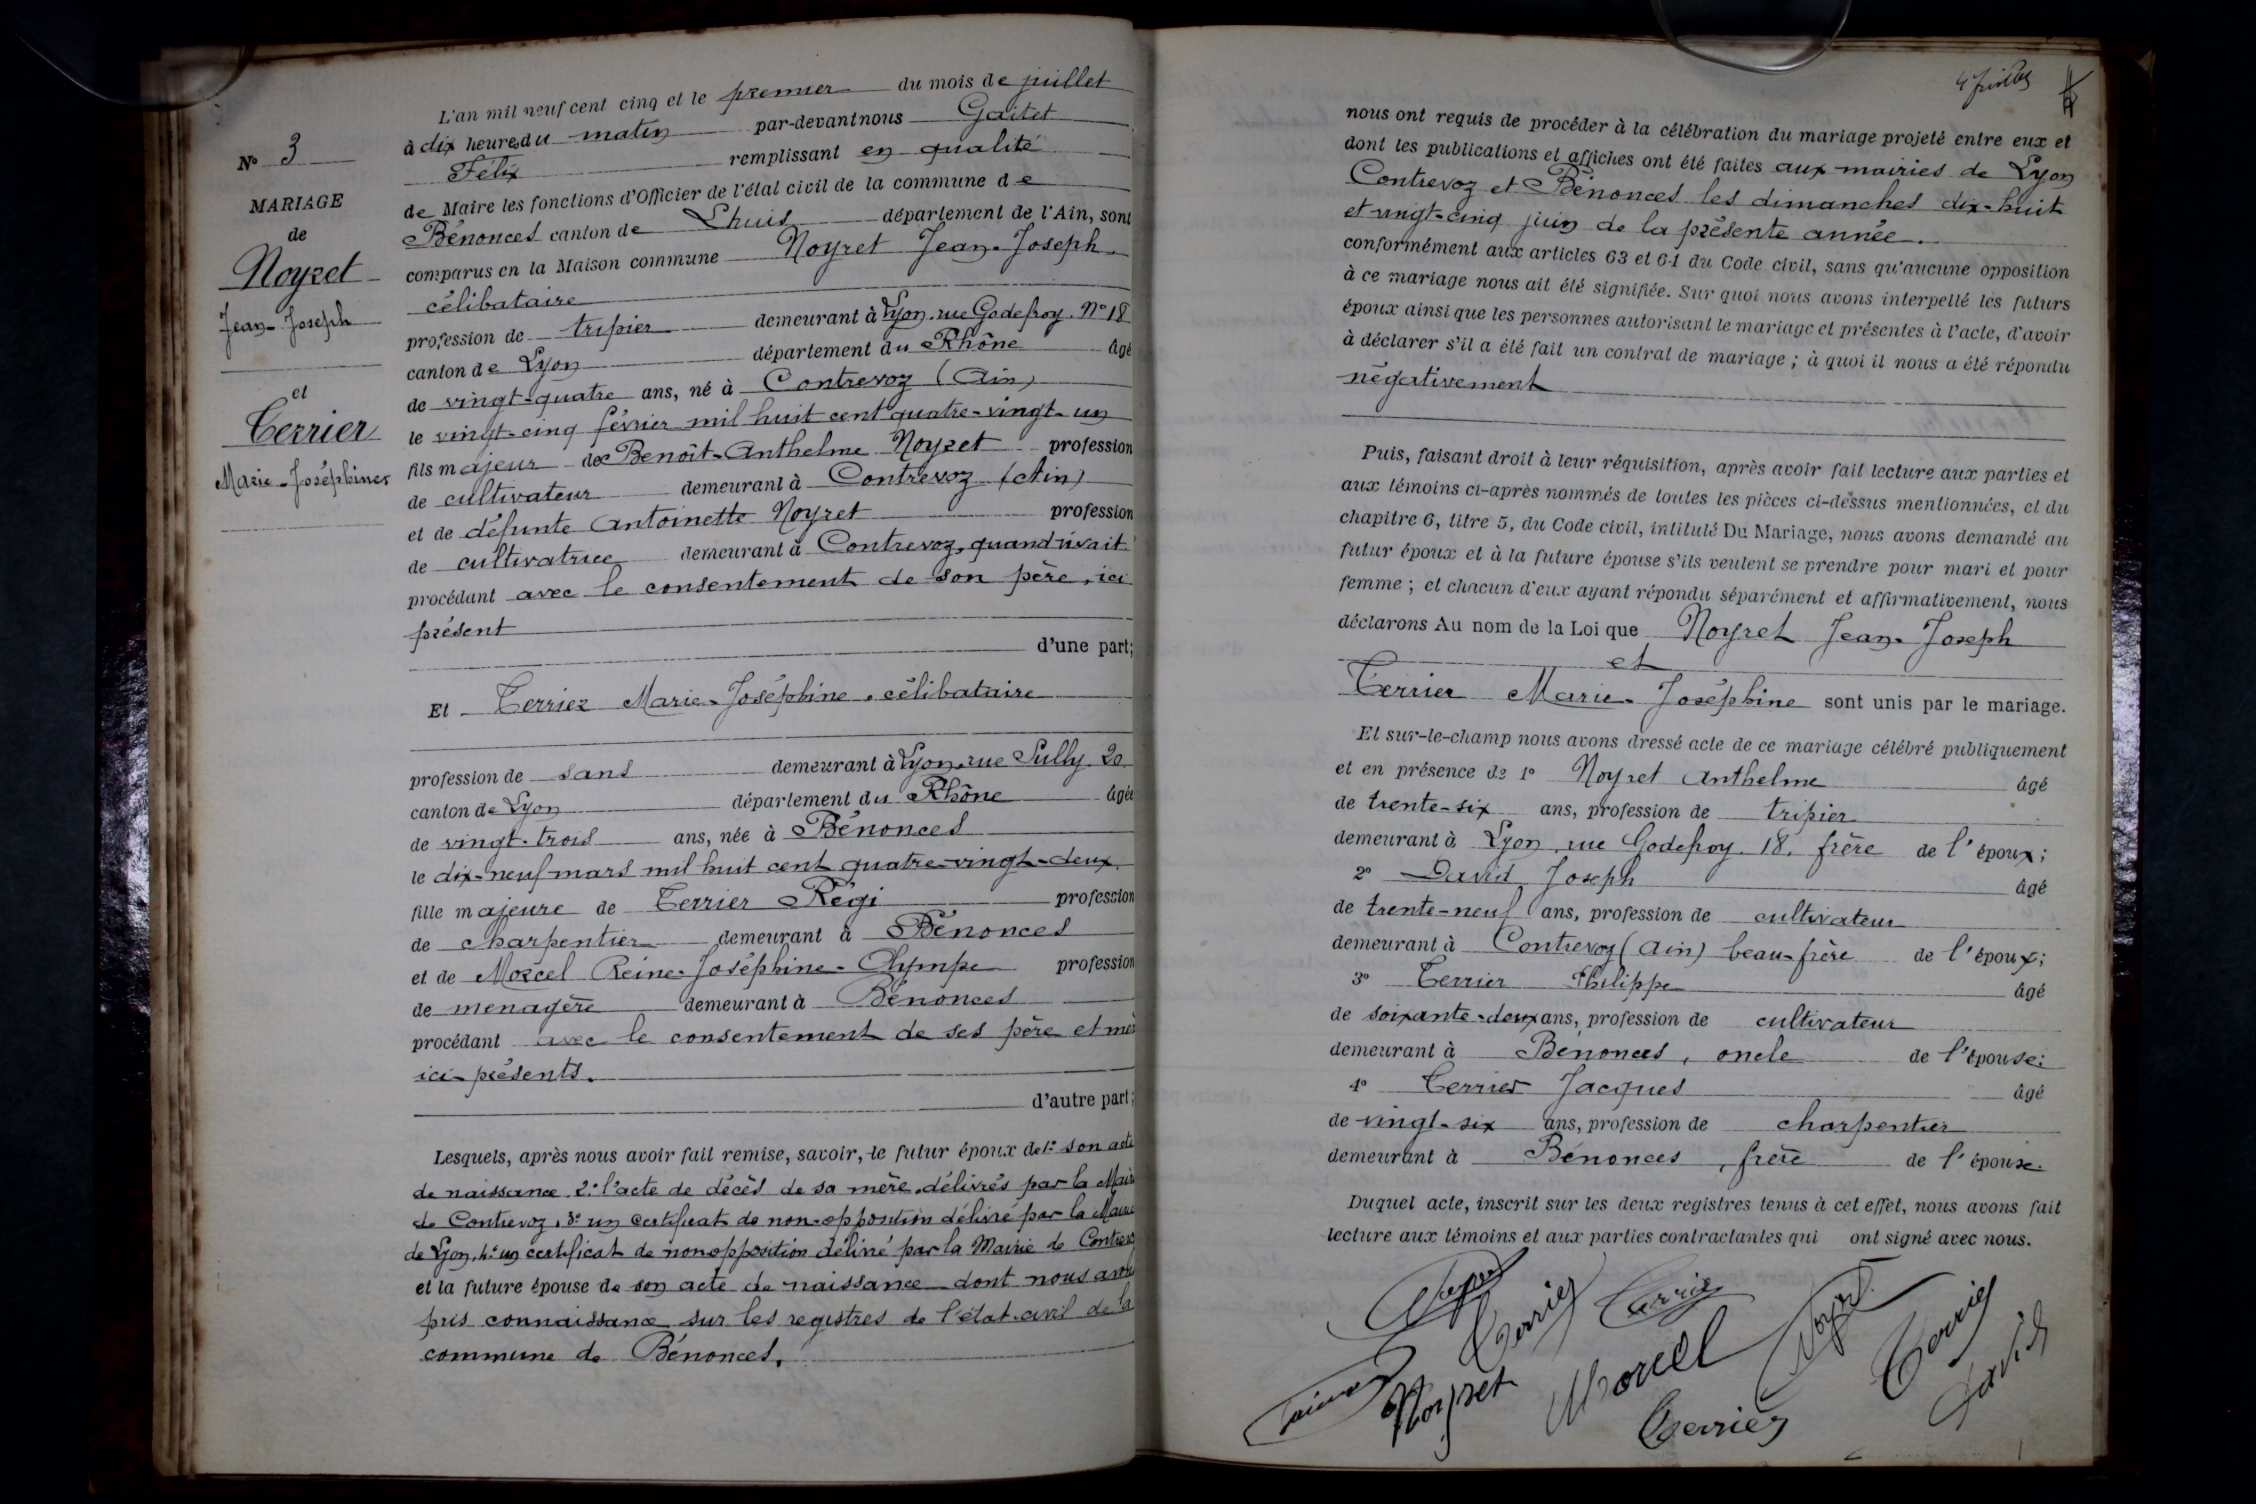 L'an mil neuf cent cinq et le premier du mois de juillet
à dix heures du matin par-devant nous Gaitet
Félix remplissant en qualité
de Maire les fonctions d'Officier de l'état civil de la commune de
Bénonces canton de Lhuis département de l'Ain, sont
comparus en la Maison commune Noyret Jean-Joseph
célibataire
profession de tripier demeurant à Lyon, rue Godefroy. N° 18
canton de Lyon département du Rhône âgé
de vingt-quatre ans, né à Contrevoz (Ain)
le vingt-cinq février mil huit cent quatre-vingt-un
fils majeur de Benoît-Anthelme Noyret profession
de cultivateur demeurant à Contrevoz (Ain)
et de défunte Antoinette Noyret profession
de cultivatrice demeurant à Contrevoz, quand vivait
procédant avec le consentement de son père, ici
présent
d'une part;
Et Terrier Marie-Joséphine, célibataire
profession de sans demeurant à Lyon, rue Sully. 20
canton de Lyon département du Rhône âgée
de vingt-trois ans, née à Bénonces
le dix-neuf mars mil huit cent quatre-vingt-deux
fille majeure de Terrier Régi profession
de charpentier demeurant à Bénonces
et de Morcel Reine-Joséphine-Olympe profession
de menagère demeurant à Bénonces
procédant avec le consentement de ses père et mè
ici présents.
d'autre part;
Lesquels, après nous avoir fait remise, savoir, le futur époux de 1° son acte
de naissance, 2° l'acte de décès de sa mère, délivrés par la Mairie
de Contrevoz, 3° un certificat de non-opposition délivré par la Mairie
de Lyon, 4° un certificat de non opposition délivré par la Mairie de Contrevoz
et la future épouse de son acte de naissance dont nous avons
pris connaissance sur les registres de l'état-civil de la
commune de Bénonces.
N° 3
MARIAGE
de
Noyret
Jean-Joseph
et
Terrier
Marie-Joséphine
nous ont requis de procéder à la célébration du mariage projeté entre eux et
dont les publications et affiches ont été faites aux mairies de Lyon
Contrevoz et Bénonces les dimanches dix-huit
et vingt-cinq juin de la présente année.
conformément aux articles 63 et 64 du Code civil, sans qu'aucune opposition
à ce mariage nous ait été signifiée. Sur quoi nous avons interpellé les futurs
époux ainsi que les personnes autorisant le mariage et présentes à l'acte, d'avoir
à déclarer s'il a été fait un contrat de mariage; à quoi il nous a été répondu
négativement
Puis, faisant droit à leur réquisition, après avoir fait lecture aux parties et
aux témoins ci-après nommés de toutes les pièces ci-dessus mentionnées, et du
chapitre 6, titre 5, du Code civil, intitulé Du Mariage, nous avons demandé au
futur époux et à la future épouse s'ils veulent se prendre pour mari et pour
femme; et chacun d'eux ayant répondu séparément et affirmativement, nous
déclarons Au nom de la Loi que Noyret Jean-Joseph
et
Terrier Marie-Joséphine sont unis par le mariage.
Et sur-le-champ nous avons dressé acte de ce mariage célébré publiquement
et en présence de 1° Noyret Anthelme âgé
de trente-six ans, profession de tripier
demeurant à Lyon, rue Godefroy. 18. frère de l'époux;
2° David Joseph âgé
de trente-neuf ans, profession de cultivateur
demeurant à Contrevoz (Ain) beau-frère de l'époux;
3° Terrier Philippe âgé
de soixante-deux ans, profession de cultivateur
demeurant à Bénonces, oncle de l'épouse;
4° Terrier Jacques âgé
de vingt-six ans, profession de charpentier
demeurant à Bénonces, frère de l'épouse.
Duquel acte, inscrit sur les deux registres tenus à cet effet, nous avons fait
lecture aux témoins et aux parties contractantes qui ont signé avec nous.
Terrier Terrier Noyret Terrier
Noyret Morcel David
Terrier